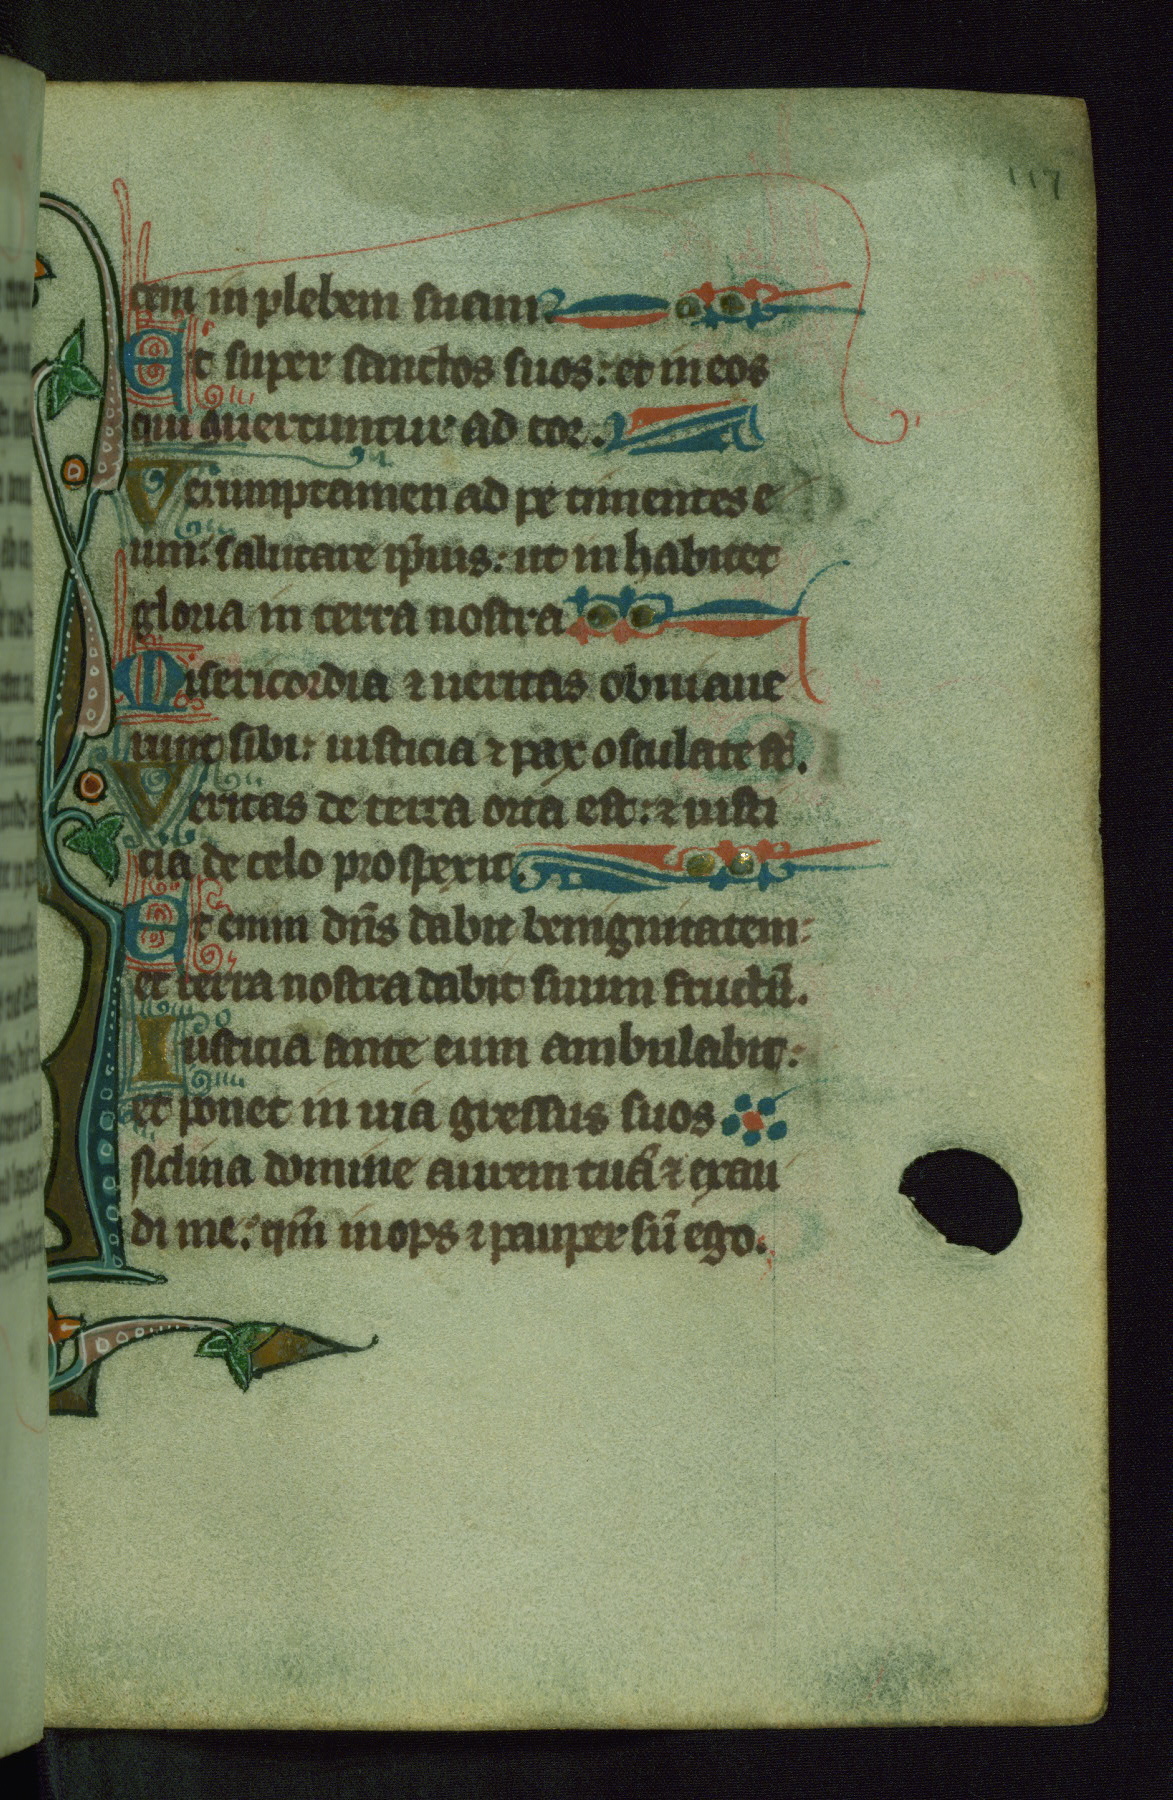 117
cem in plebem suam.
Et super sanctos suos: et in eos
qui auertuntur ad cor.
Verumptamen ad pe timentes e
um: salutare ip̃ius: ut in habitet
gloria in terra nostra
Misericordia ⁊ ueritas obuiaue
runt sibi: iusticia ⁊ pax osculate st̃.
Veritas de terra orta est: ⁊ iusti
cia de celo prospexit.
Et enim dñs dabit benignitatem:
et terra nostra dabit suum fructũ.
Iusticia ante eum ambulabit:
et ponet in uia gressus suos
Iclina domine aurem tuã ⁊ exau
di me: qm̃ inops ⁊ pauper sũ ego.